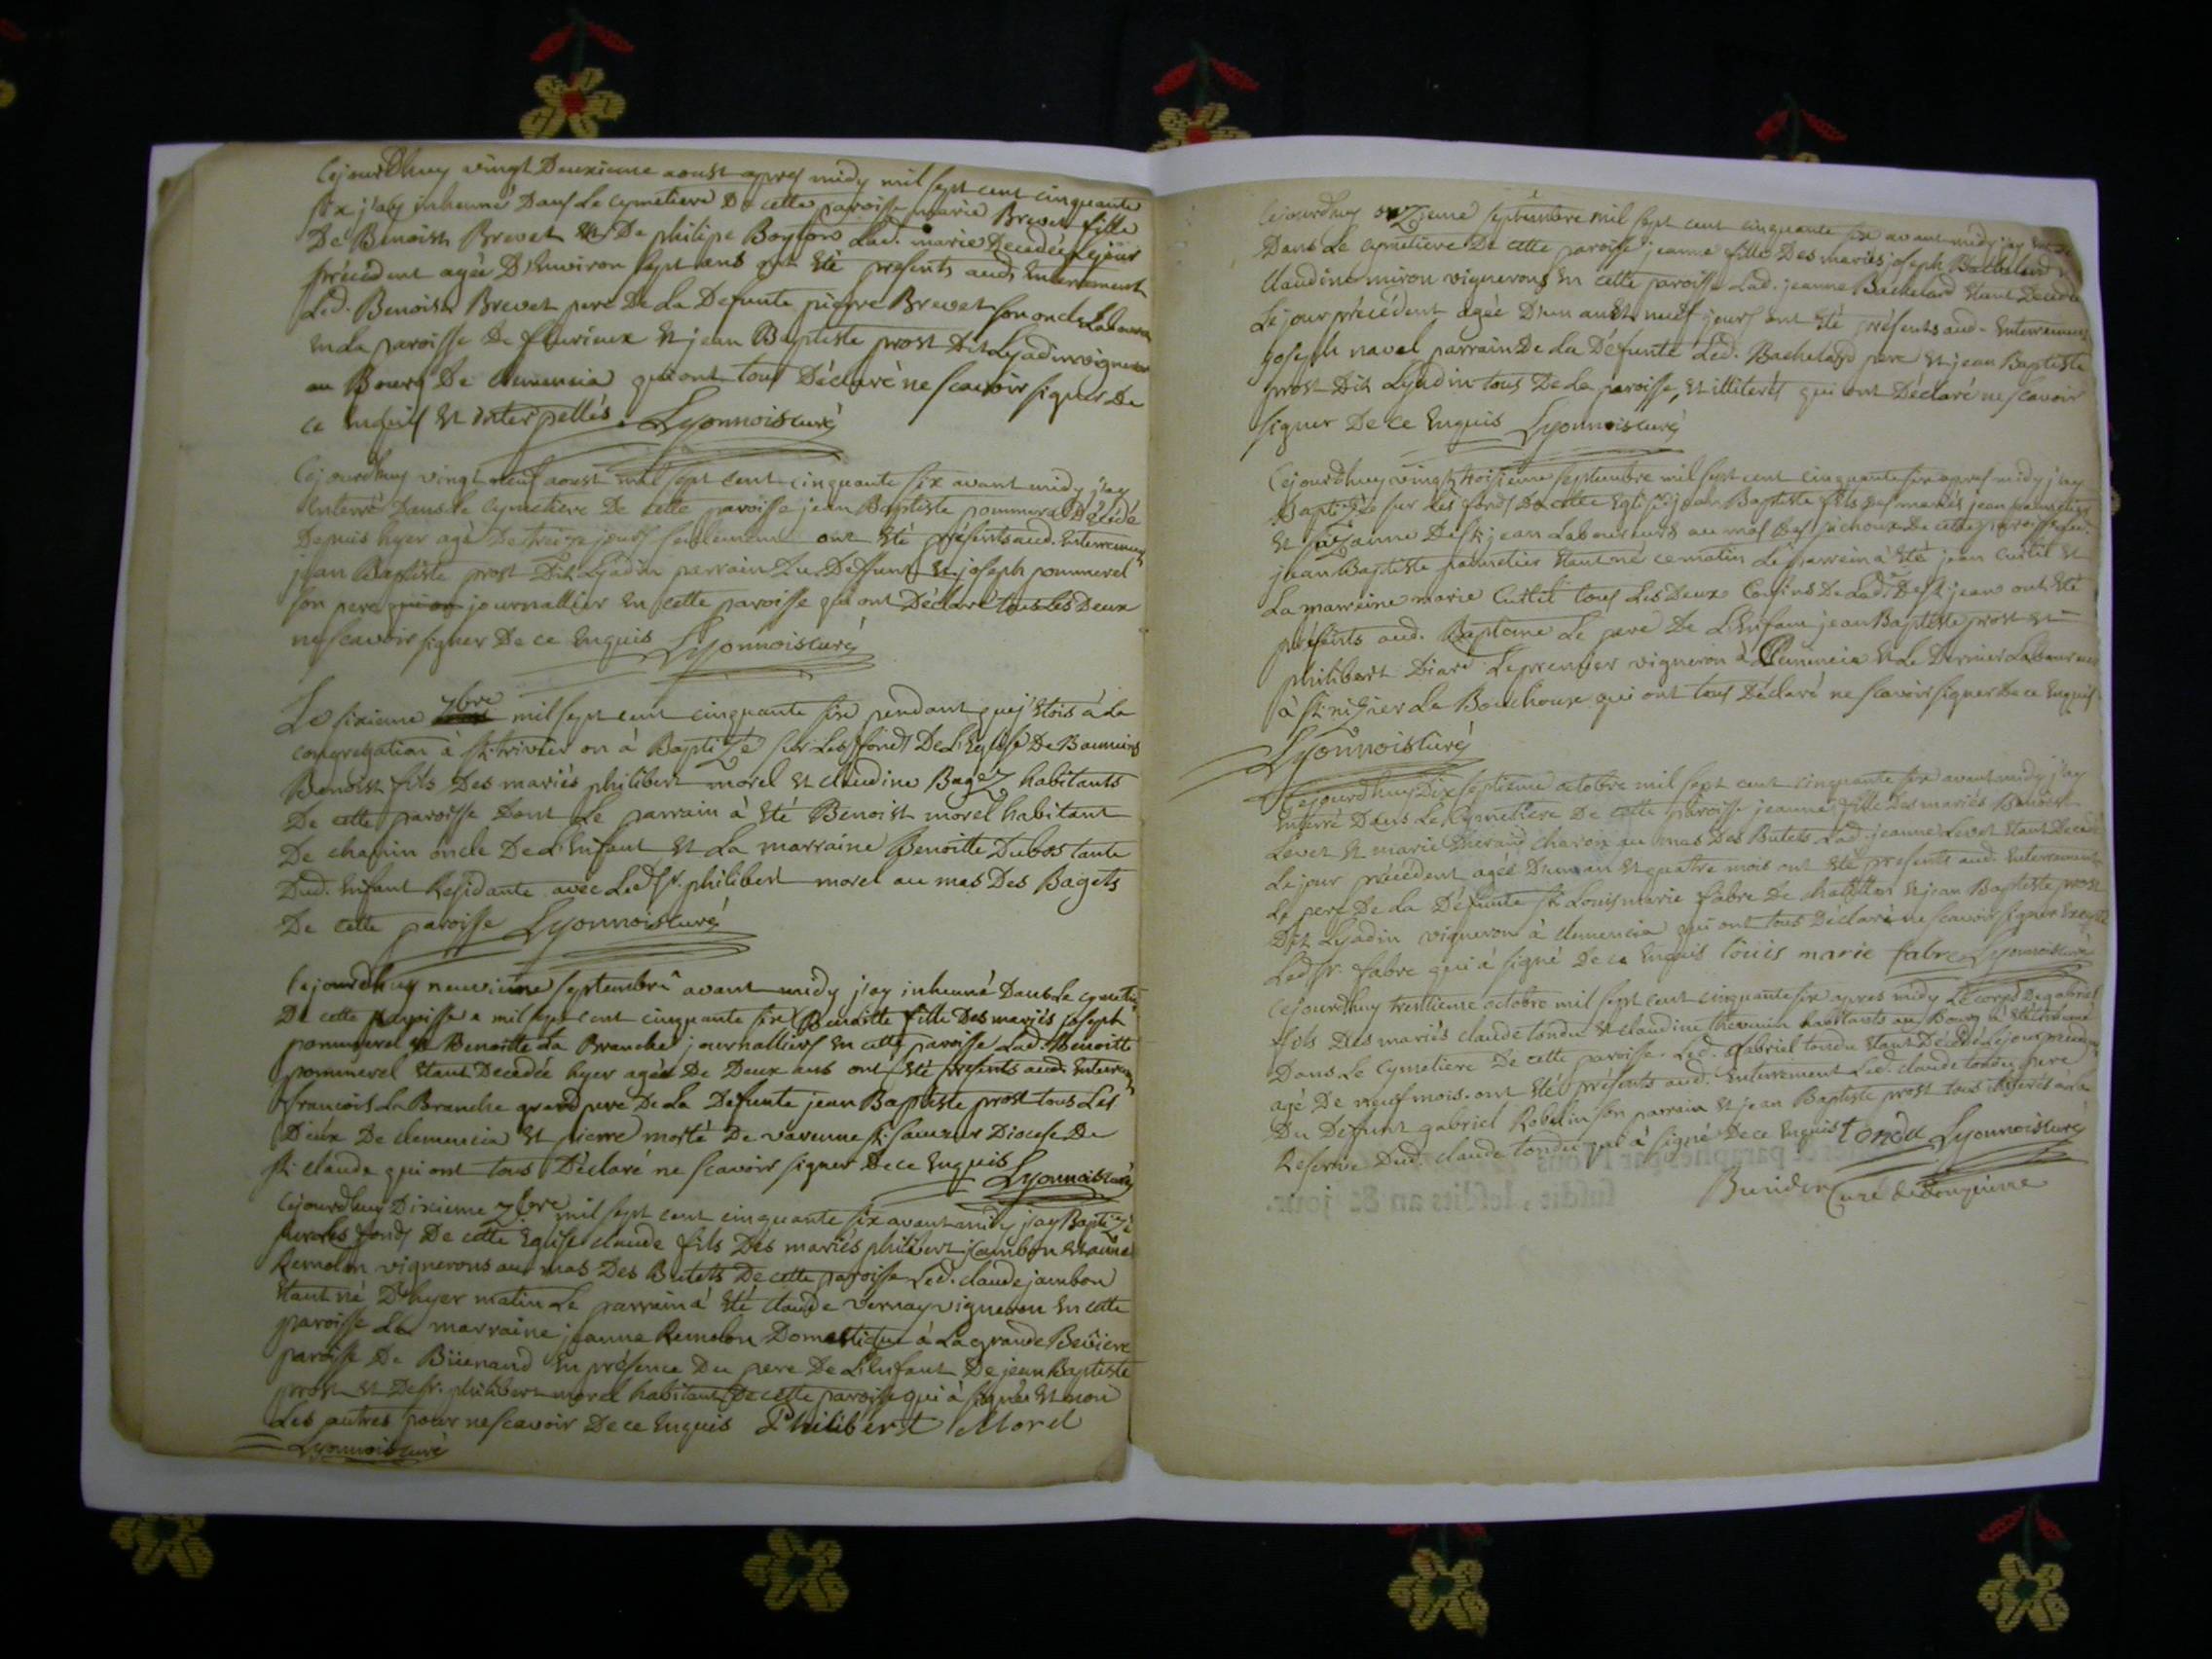 Cejourdhuy vingt Deuxieme aoust apres midy mil sept cent cinquante
six j'ay inhumé Dans Le cymetiere De cette paroisse marie Brevet fille
De Benoist Brevet et De philipe Boyton Lad. marie Decedée Le jour
précédent agée D'Environ sept ans ont Eté presents aud. Enterrement
Led. Benoist Brevet pere De La Defunte pierre Brevet son oncle Laboureur
en La paroisse De fleurieux Et jean Baptiste prost Dit Lyadin vigneron
au Bourg De clemencia qui ont tous Déclaré ne scavoir signer De
ce Enquis Et interpellés Lyonnois curé
Cejourdhuy vingt neuf aoust mil sept cent cinquante six avant midy j'ay
Enterré Dans Le cymetiere De cette paroisse jean Baptiste pommerel Décédé
Depuis hyer agé De treize jours seulement ont Eté présents aud. Enterrement
jean Baptiste prost Dit Lyadin parrain Du Deffunt Et joseph pommerel
son pere journallier En cette paroisse qui ont Déclaré tous Les Deux
ne scavoir signer De ce Enquis Lyonnois curé
Le sixieme 7bre mil sept cent cinquante six pendant que j'Etois à La
congregation à St. trivier on à Baptizé sur Les fonds De L'Eglise De Baneins
Benoist fils Des mariés philibert morel Et claudine Bagez habitants
De cette paroisse Dont Le parrain à Eté Benoist morel habitant
De chanin oncle De L'Enfant Et La marraine Benoitte Dubost tante
Dud. Enfant Residante avec Led. Sr. philibert morel au mas Des Bagets
De cette paroisse Lyonnois curé
Cejourdhuy neuvieme septembre avant midy j'ay inhumé Dans Le cymetiere
De cette paroisse mil sept cent cinquante six Benoitte fille Des mariés joseph
pommerel Et Benoitte La Branche journalliers En cette paroisse Lad. Benoitte
pommerel Etant Decedée hyer agée De Deux ans ont Eté présents aud. Enterrement
francois La Branche grand pere De La Defunte jean Baptiste prost tous Les
Deux De clemencia Et pierre morté De varenne St. sauveur Diocese De
St. claude qui ont tous Déclaré ne scavoir signer De ce Enquis Lyonnois curé
Cejourdhuy Dixieme 7bre mil sept cent cinquante six avant midy j'ay Baptizé
sur Les fonds De cette Eglise claude fils Des mariés philibert jambon Et anne
Remolon vignerons au mas Des Butets De cette paroisse Led. claude jambon
Etant né D'hyer matin Le parrain à Eté claude vernay vigneron En cette
paroisse La marraine jeanne Remolon Domestique à La grande
paroisse De Buenand En présence Du pere De L'Enfant De jean Baptiste
prost Et De Sr. philibert morel habitant De cette paroisse qui à signé Et non
Les autres pour ne scavoir De ce Enquis Philibert Morel
Lyonnois curé
Cejourdhuy onzieme septembre mil sept cent cinquante six avant midy j'ay
Dans Le cymetiere De cette paroisse jeanne fille Des mariés joseph Bachelard
claudine miron vignerons En cette paroisse Lad. jeanne Bachelard Etant Decedée
Le jour précédent agée D'un an Et neuf jours ont Eté présents aud. Enterrement
joseph navel parrain De La Défunte Led. Bachelard pere Et jean Baptiste
prost Dit Lyadin tous De La paroisse, Et illiterés qui ont Déclaré ne scavoir
signer De ce Enquis Lyonnois curé
Cejourdhuy vingt troisieme septembre mil sept cent cinquante six apres midy j'ay
Baptizé sur Les fonds De cette Eglise jean Baptiste fils Des mariés jean
Et suzanne De St. jean Laboureurs au mas Des De cette paroisse
jean Baptiste Etant né ce matin Le parrein à Eté jean Curtil Et
La marreine marie Curtil tous Les Deux Cousins De Lad. De St. jean ont Eté
présents aud. Baptême Le pere De L'Enfant jean Baptiste prost Et
philibert Diard Le premier vigneron à Clemencia Et Le Dernier Laboureur
à St. nizier Le Bouchoux qui ont tous Déclaré ne scavoir signer De ce Enquis
Lyonnois curé
Cejourdhuy Dix septieme octobre mil sept cent cinquante six avant midy j'ay
Enterré Dans Le Cymetiere De cette paroisse jeanne fille Des mariés Benoist
Levet Et marie charon au mas Des Butets Lad. jeanne Levet Etant Decedée
Le jour précédent agée D'un an Et quatre mois ont Eté presents aud. Enterrement
Le pere De La Défunte Sr. Louis marie fabre De chatillon Et jean Baptiste prost
Dit Lyadin vigneron à clemencia qui ont tous Déclaré ne scavoir signer Excepté
Led. Sr. fabre qui à signé De ce Enquis louis marie fabre Lyonnois curé
Cejourdhuy trentieme octobre mil sept cent cinquante six apres midy Le corps De gabriel
fils Des mariés claude tondu Et claudine thevenin habitants au Bourg à Eté inhumé
Dans Le Cymetiere De cette paroisse. Led. gabriel tondu Etant Décédé Le jour précédent
agé De neuf mois. ont Eté présents aud. Enterrement Led. claude tondu pere
Du Défunt gabriel Robelin son parrain Et jean Baptiste prost tous illiterés à La
Reserve Dud. claude tondu qui à signé De ce Enquis tondu Lyonnois curé
Curé de